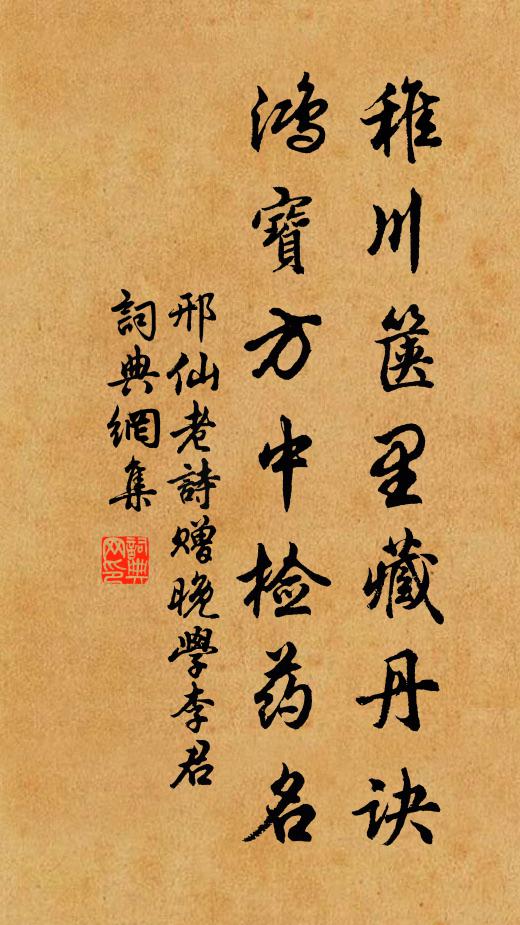 稚川箧里藏丹诀
鸿寶方中检药名
邢仙老詩赠晚學李君
詞典網集
詞典网印